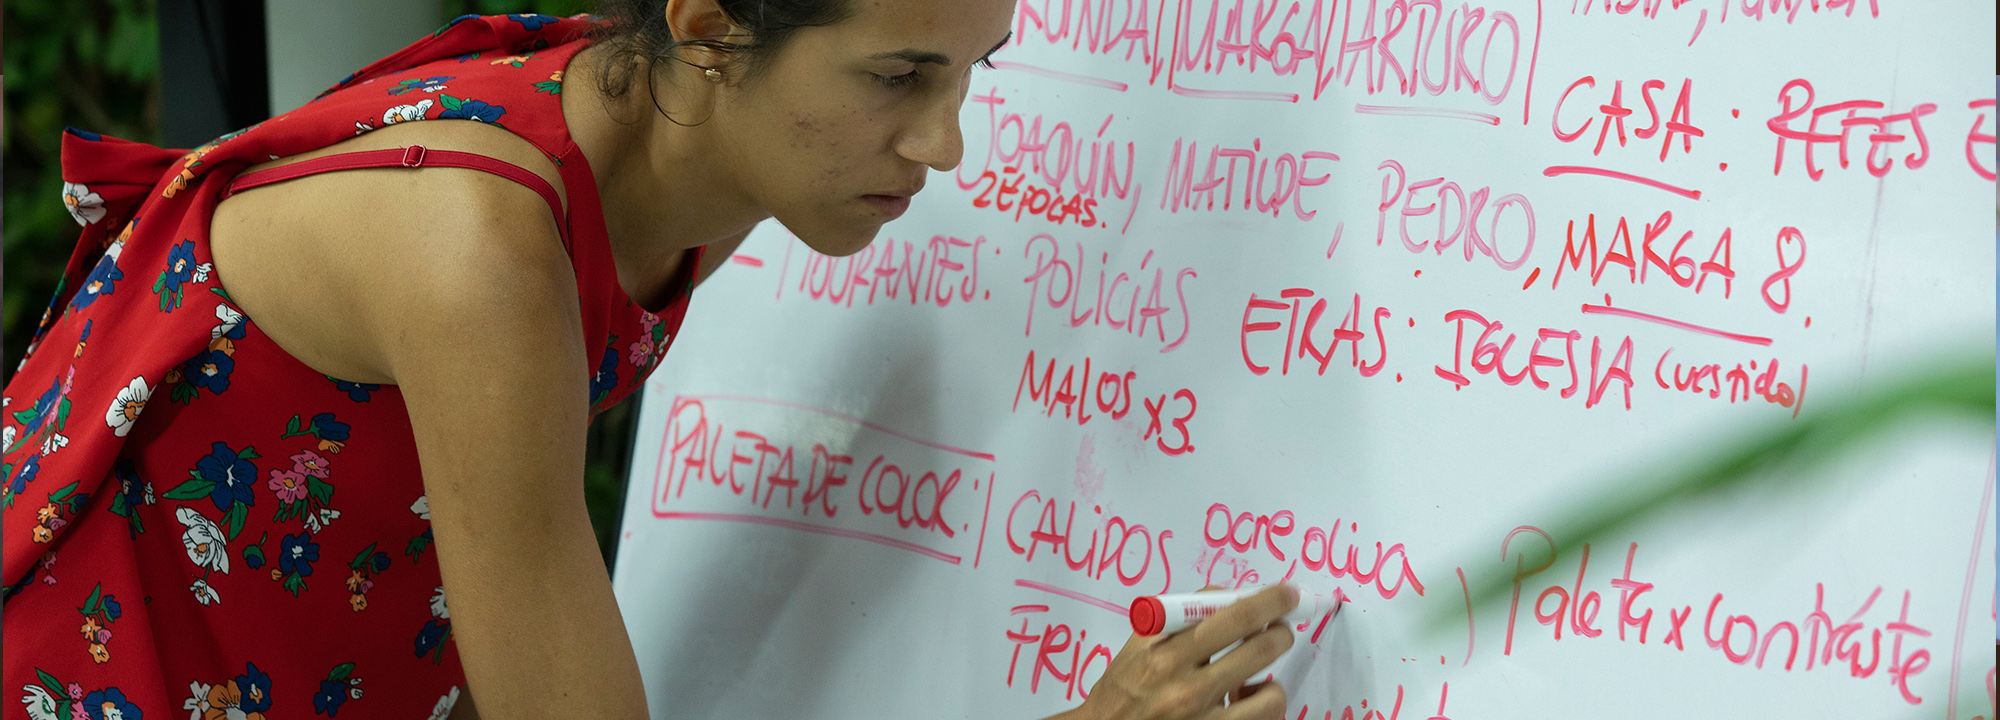 MARGA / ARTURO
CASA: RETES E
JOAQUÍN, MATILDE, PEDRO, MARGA 8.
2 ÉPOCAS.
POLICÍAS
ETRAS: IGLESIA (vestido)
MALOS x3.
PALETA DE COLOR:
CALIDOS ocre, oliva
Paleta x contráste
FRIO